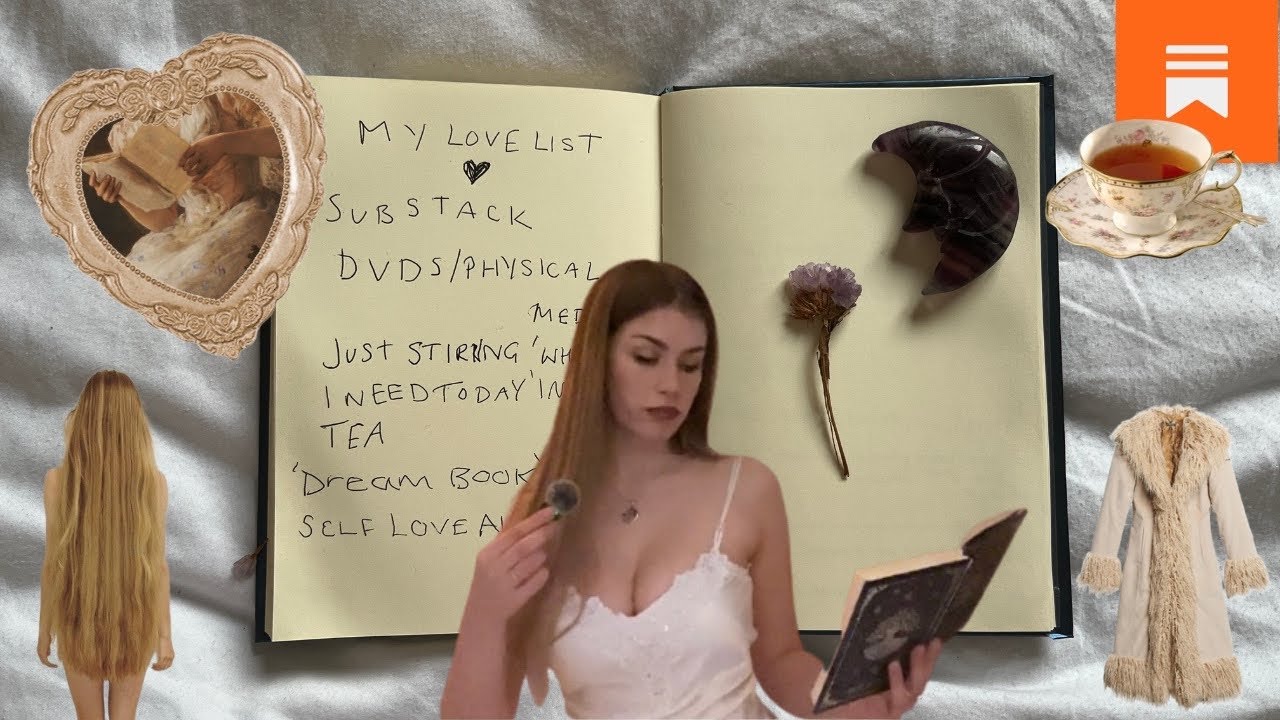 MY LOVE LIST
SUBSTACK
DVDS/PHYSICAL
JUST STIRRING
I NEED TODAY'
TEA
'DREAM BOOK
SELF LOVE